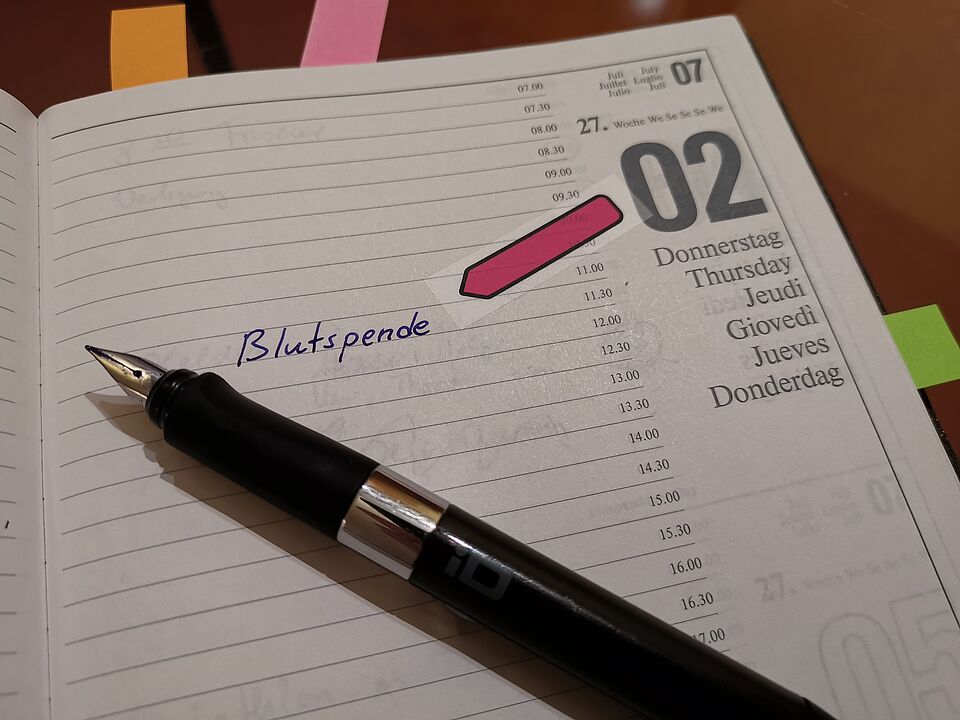 Juli July
Juillet Luglio
Julio Juli
07
27. Woche We Se Se Se We
02
Donnerstag
Thursday
Jeudi
Giovedì
Jueves
Donderdag
07.00
07.30
08.00
08.30
09.00
09.30
10.00
11.00
11.30
12.00
12.30
13.00
13.30
14.00
14.30
15.00
15.30
16.00
16.30
17.00
Blutspende
iD
27. Woche We Se Se
05